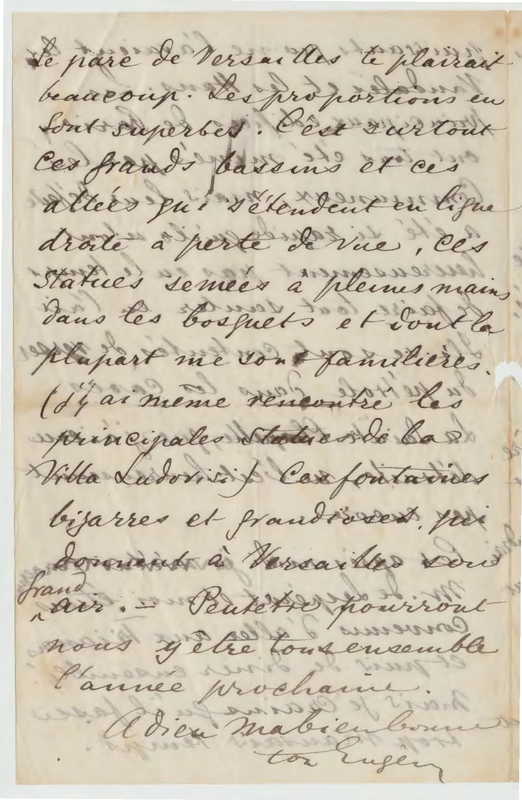 Le parc de Versailles te plairait
beaucoup. Les proportions en
sont superbes. C'est surtout
ces grands bassins et ces
allées qui s'étendent en ligne
droite a perte de vue, ces
statues semées a pleines mains
dans les bosquets et dont la
plupart me sont familières.
(j'y ai même rencontré les
principales statues de la
Villa Ludovisi) Ces fontaines
bizarres et grandioses, qui
donnent à Versailles son
grand
air. — Peutetre pourront
nous y être tous ensemble
l'année prochaine.
Adieu ma bien bonne
ton Eugen